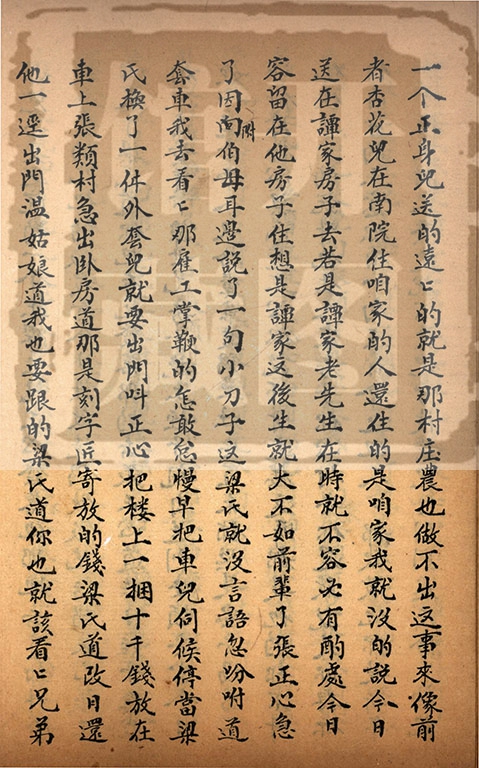 一个正身兒送的遠〻的就是那村庄農也做不出这事來像前
者杏花兒在南院住咱家的人還住的是咱家我就没的說今日
送在譚家房子去若是譚家老先生在時就不容必有酌處今日
容留在他房子住想是譚家这後生就大不如前輩了張正心急
了因向伯母耳邊說了一句小刀子这梁氏就没言語忽吩咐道
套車我去看〻那雇工掌鞭的怎敢怠慢早把車兒伺候停當梁
氏換了一件外套兒就要出門呌正心把楼上一捆十千錢放在
車上張類村急出卧房道那是刻字匠寄放的錢梁氏道改日還
他一逕出門温姑娘道我也要跟的梁氏道你也就該看〻兄弟